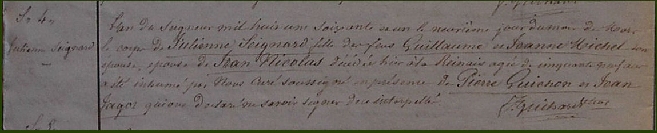 L'an du Seigneur mil huit cent soixante et un le neuvième jour du mois de Mai
Julienne Seignard
le corps de Julienne Seignard fille de feus Guillaume et Jeanne Michel son
épouse, épouse de Jean Nicolas décédée hier à la Reinais agée de cinquante neuf ans
a été inhumé par Nous Curé soussigné en présence de Pierre Guichon et Jean
qui ont déclaré ne savoir signer de ce interpellé